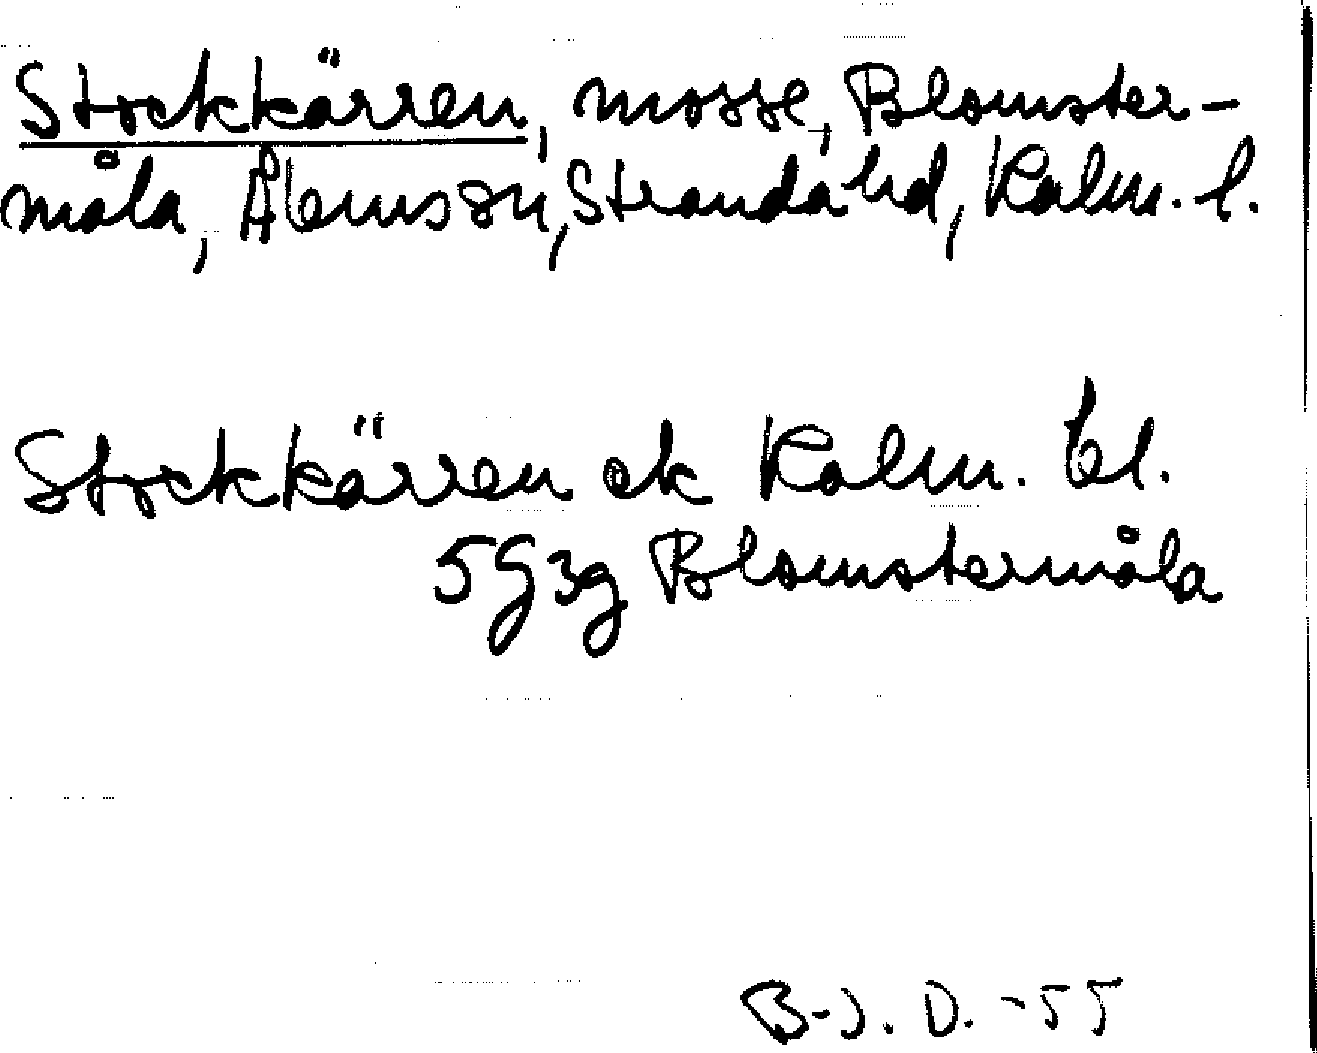 Stockkärren, mosse, Blomster-
måla, Ålemsn, Stranda hd, Kalm. l.
Stockkärren ek Kalm. bl.
5G3g Blomstermåla
B-J. D. -55